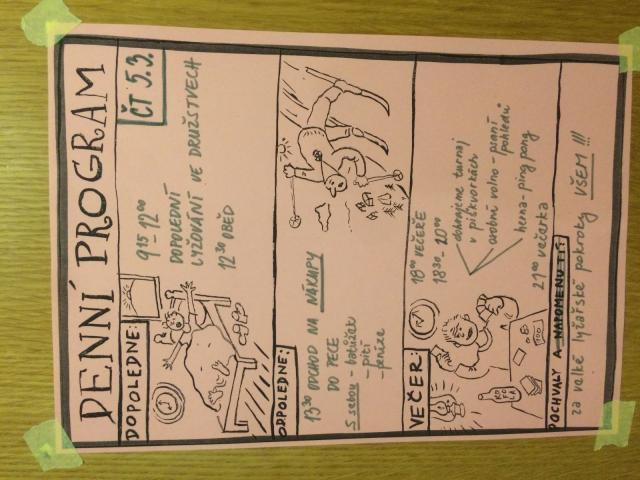 DENNÍ PROGRAM
DOPOLEDNE:
ČT 5.3.
9¹⁵-12⁰⁰
DOPOLEDNÍ
LYŽOVÁNÍ VE DRUŽSTVECH
12³⁰ OBĚD
ODPOLEDNE:
13³⁰ ODCHOD NA NÁKUPY
DO PECE
S sebou - batůžek
- pití
- peníze
VEČER:
18⁰⁰ VEČEŘE
18³⁰-20⁰⁰
dohrajeme turnaj
v piškvorkách
osobní volno - psaní
pohledů
herna - ping pong
21⁰⁰ večerka
POCHVALY A NAPOMENUTÍ:
za velké lyžařské pokroky VŠEM !!!